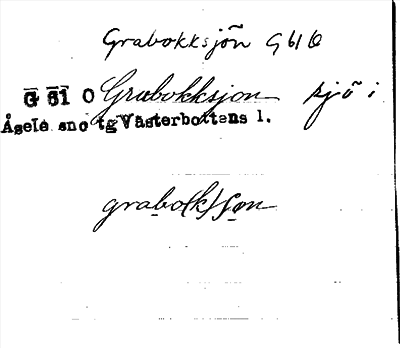 Grabokksjön G 61 O
G 61 O Grabokksjon sjö i
Åsele sno tg Västerbottens l.
grabo(k)ʃon